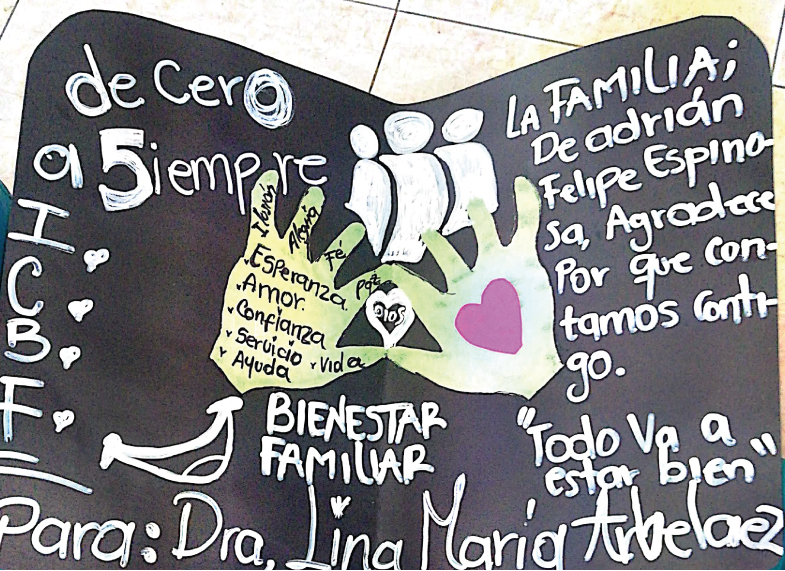 de cero
a 5iempre
I
C
B
F
Alegría
Fé
Paz
Esperanza
Amor.
Confianza
Servicio
Vida
Ayuda
DIOS
LA FAMILIA;
De adrián
Felipe Espino-
sa, Agradece
Por que con-
tamos conti-
go.
BIENESTAR
FAMILIAR
"Todo Va a
estar bien"
Para: Dra, Lina María Arbelaez